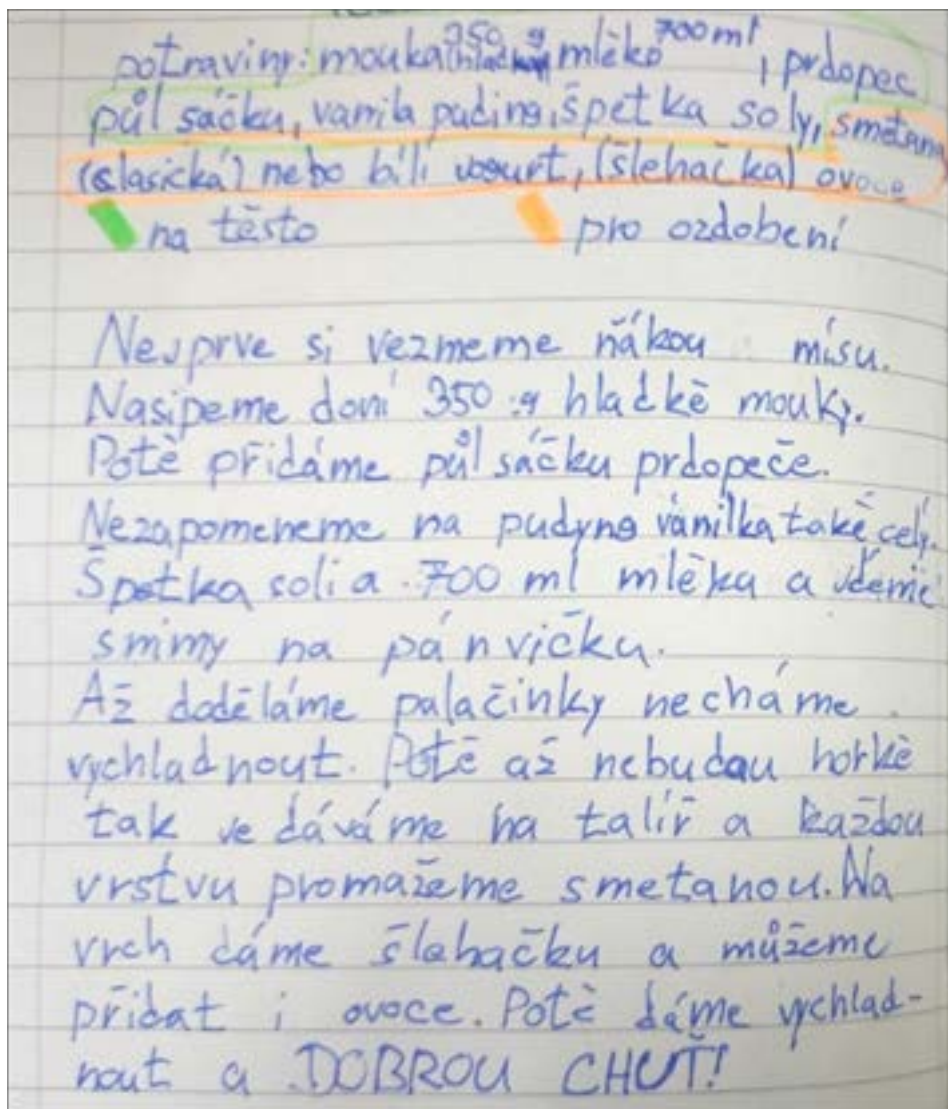 potraviny: mouka 350 g (hladká) mléko 700 ml, prdopec
půl sáčku, vanila puding, špetka soly, smetana
(clasická) nebo bílí jogurt, (šlehačka) ovoce
na těsto pro ozdobení
Nejprve si vezmeme ňákou mísu.
Nasipeme doní 350 g hladké mouky.
Poté přidáme půl sáčku prdopeče.
Nezapomeneme na pudyng vanilka také celý.
Špetka soli a 700 ml mléka a
smimy na pánvičku.
Až doděláme palačinky necháme
vychladnout. Poté až nebudou horké
tak je dáváme na talíř a každou
vrstvu promažeme smetanou. Na
vrch dáme šlehačku a můžeme
přidat i ovoce. Poté dáme vychlad-
nout a DOBROU CHUŤ!